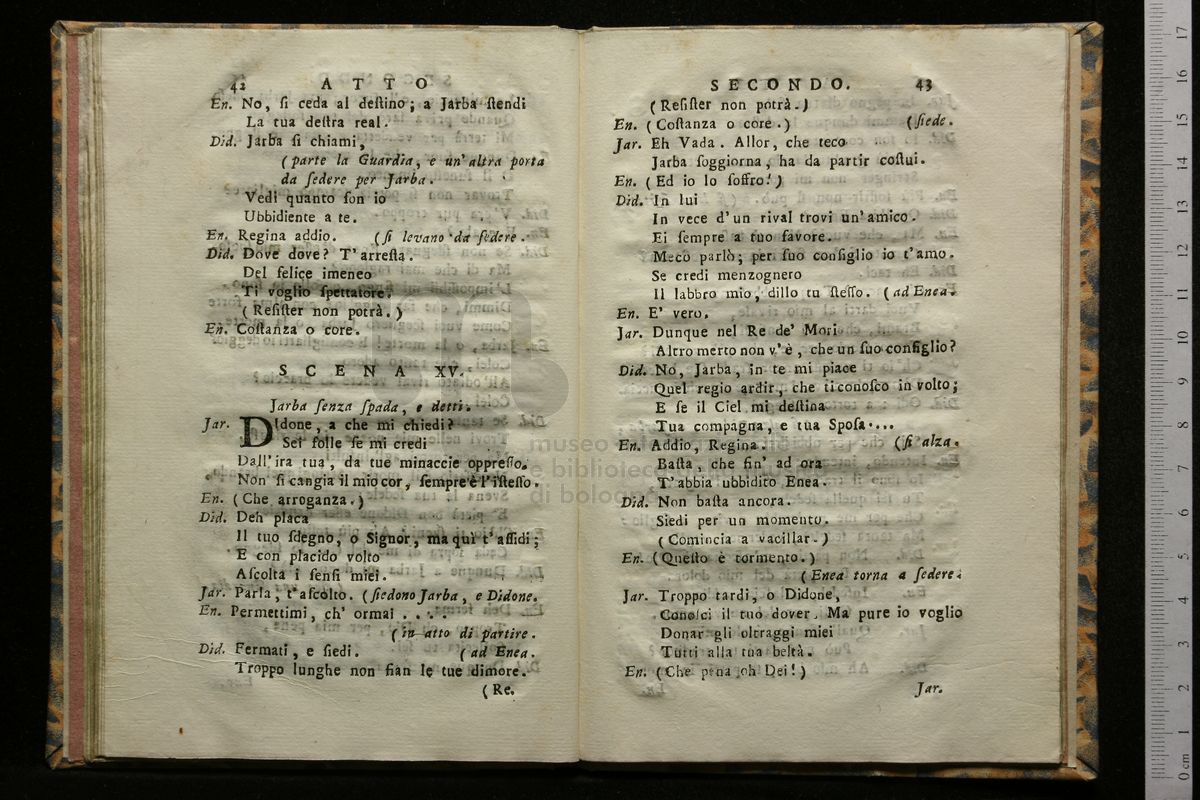 42 ATTO
En. No, ſi ceda al deſtino; a Jarba ſtendi
La tua deſtra real.
Did. Jarba ſi chiami,
(parte la Guardia, e un'altra porta
da ſedere per Jarba.
Vedi quanto ſon io
Ubbidiente a te.
En. Regina addio. (ſi levano da ſedere.
Did. Dove dove? T'arreſta.
Del felice imeneo
Ti voglio ſpettatore.
(Reſiſter non potrà.)
En. Coſtanza o core.
SCENA XV.
Jarba ſenza ſpada, e detti.
Jar. DIdone, a che mi chiedi?
Sei folle ſe mi credi
Dall'ira tua, da tue minaccie oppreſſo.
Non ſi cangia il mio cor, ſempre è l'iſteſſo.
En. (Che arroganza.)
Did. Deh placa
Il tuo ſdegno, o Signor, ma quì t'aſſidi;
E con placido volto
Aſcolta i ſenſi miei.
Jar. Parla, t'aſcolto. (ſiedono Jarba, e Didone.
En. Permettimi, ch' ormai . . . .
(in atto di partire.
Did. Fermati, e ſiedi. (ad Enea.
Troppo lunghe non fian le tue dimore.
(Re.
SECONDO. 43
(Reſiſter non potrà.)
En. (Coſtanza o core.) (ſiede.
Jar. Eh Vada. Allor, che teco
Jarba ſoggiorna, ha da partir coſtui.
En. (Ed io lo ſoffro!)
Did. In lui
In vece d'un rival trovi un'amico.
Ei ſempre a tuo favore
Meco parlò; per ſuo conſiglio io t'amo.
Se credi menzognero
Il labbro mio, dillo tu ſteſſo. (ad Enea.
En. E' vero.
Jar. Dunque nel Re de' Mori
Altro merto non v'è, che un ſuo conſiglio?
Did. No, Jarba, in te mi piace
Quel regio ardir, che ti conoſco in volto;
E ſe il Ciel mi deſtina
Tua compagna, e tua Spoſa....
En. Addio, Regina. (ſi alza.
Baſta, che fin' ad ora
T'abbia ubbidito Enea.
Did. Non baſta ancora.
Siedi per un momento.
(Comincia a vacillar.)
En. (Queſto è tormento.)
(Enea torna a ſedere.
Jar. Troppo tardi, o Didone,
Conoſci il tuo dover. Ma pure io voglio
Donar gli oltraggi miei
Tutti alla tua beltà.
En. (Che pena oh Dei!)
Jar.
museo
e biblioteca
di bolog
0 cm 1 2 3 4 5 6 7 8 9 10 11 12 13 14 15 16 17